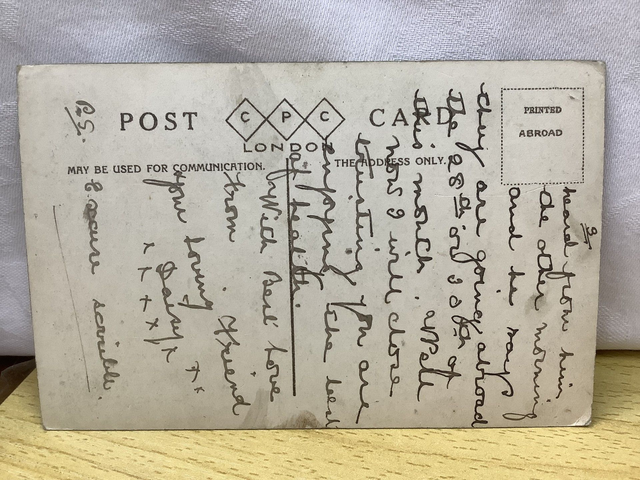 POST CARD
C P C
LONDON
MAY BE USED FOR COMMUNICATION.
THE ADDRESS ONLY.
PRINTED
ABROAD
3
heard from him
the other morning
and he says
they are going abroad
the 28th or 29th of
this month. Well
now I will close
trusting you are
enjoying the best
of health.
With Best Love
from
your loving Friend
x x x x x x x
Excuse scribble.